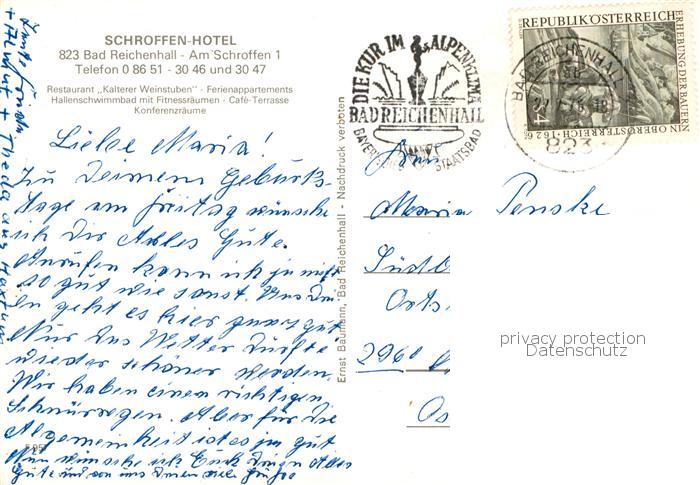 SCHROFFEN-HOTEL
823 Bad Reichenhall - Am Schroffen 1
Telefon 0 86 51 - 30 46 und 30 47
Restaurant „Kalterer Weinstuben" · Ferienappartements
Hallenschwimmbad mit Fitnessräumen · Café-Terrasse
Konferenzräume
Liebe Maria!
Zu Deinem Geburts-
tage am Freitag wünsche
ich Dir Alles Gute.
Anrufen kann ich ja nicht
so gut wie sonst. Uns
geht es hier ganz gut
Nur das Wetter dürfte
wieder schöner werden.
Wir haben einen richtigen
Schnürregen. Aber für die
Allgemeinheit ist es ja gut
Nun wünsche ich Euch Alles
Gute und von uns viele
Ernst Baumann, Bad Reichenhall - Nachdruck verboten
DIE KUR IM ALPENKLIMA
BAD REICHENHALL
STAATSBAD
BAD REICHENHALL
823
REPUBLIK ÖSTERREICH
ERHEBUNG DER BAUERN
IN OBERÖSTERREICH
Maria Penske
Orts
2960
privacy protection
Datenschutz